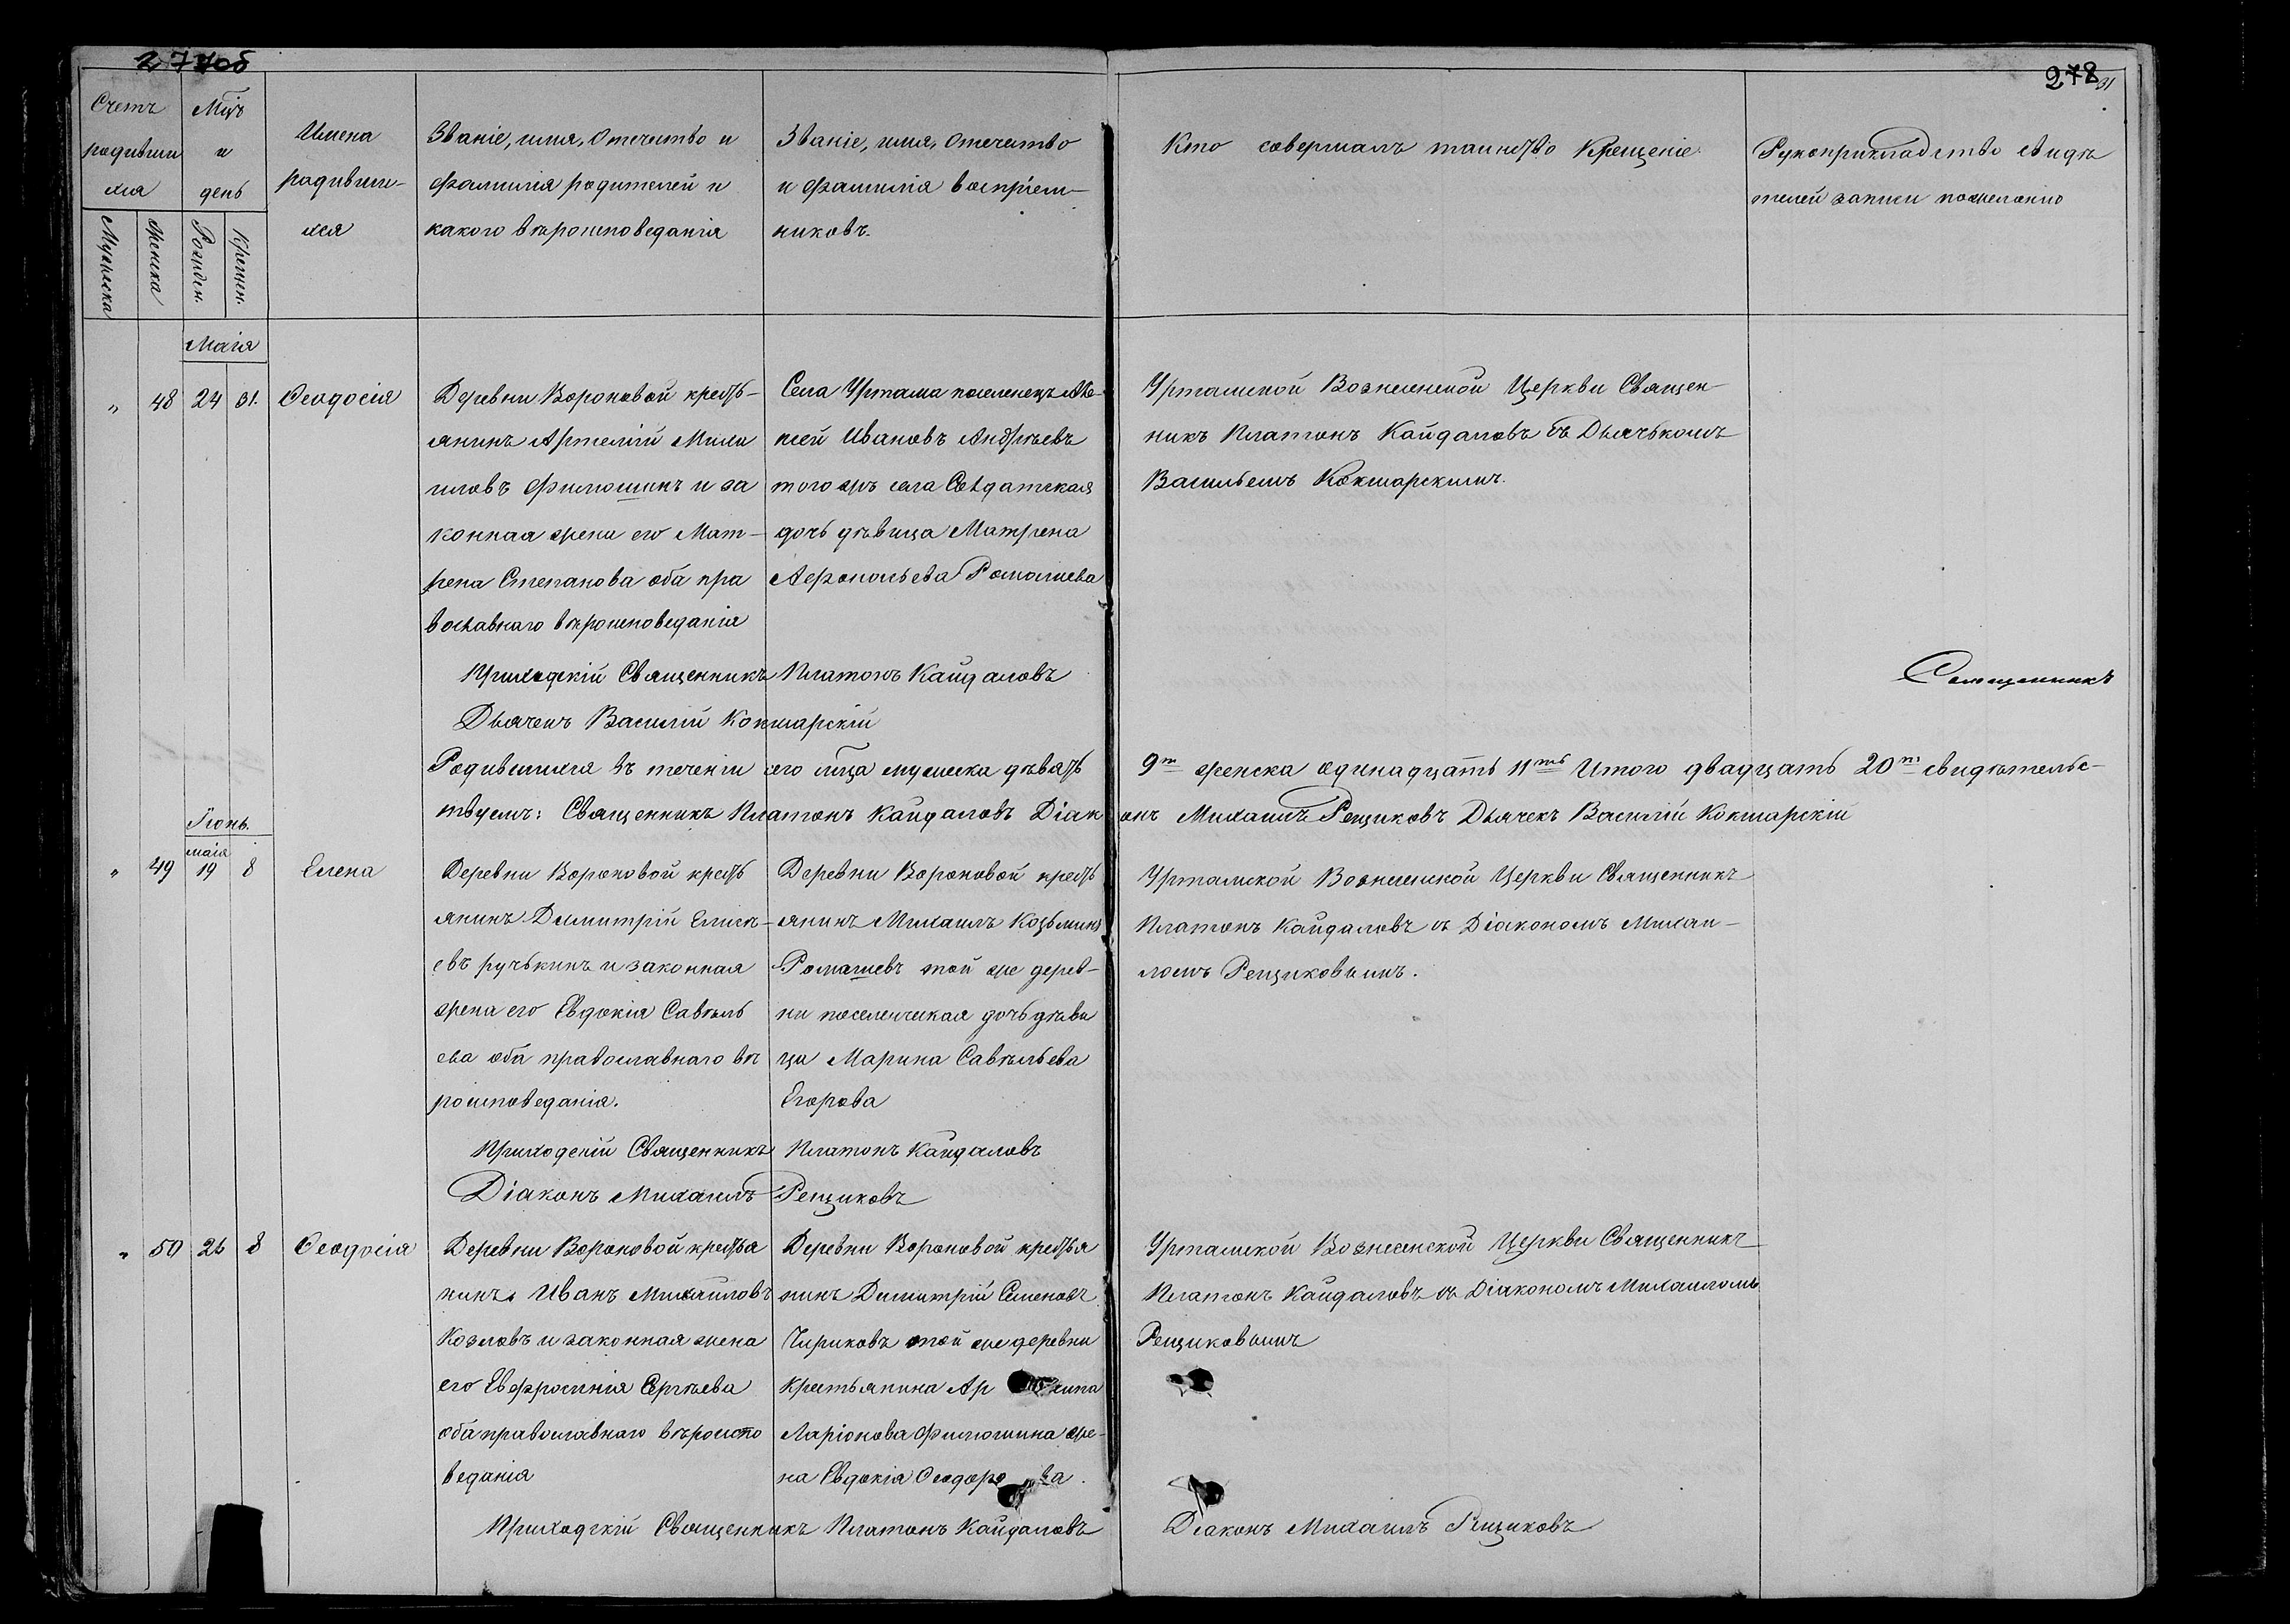 277об
278
31
Счетъ родившихся
Мѣсяцъ и день
Имена родившихся
Званіе, имя, отечество и
фамилія родителей и
какого вѣроисповеданія
Званіе, имя, отечество
и фамилія воспріем-
никовъ.
Кто совершалъ таинство Крещеніе
Рукоприкладство свидѣ
телей записи по желанію
Мужеска
Женска
Рожден.
Крещен.
Маія
" 48 24 31. Ѳеодосія
Деревни Вороновой кресть-
янинъ Артемій Михаи
ловъ Филюшинъ и за
конная жена его Мат-
рена Степанова оба пра
вославнаго вѣроисповеданія
Села Уртама поселенецъ Але-
ксѣй Ивановъ Андреевъ
того жъ села Солдатская
дочь дѣвица Матрена
Афонасьева Ромашева
Уртамской Вознесенской Церкви Священ-
никъ Платонъ Кайдаловъ съ Дьячькомъ
Васильемъ Кокшарскимъ.
Приходскій Священникъ Платонъ Кайдаловъ
Священникъ
Дьячекъ Василій Кокшарскій
Родившихся въ теченіи сего мца мужеска девять 9ть женска одинадцать 11ть Итого двадцать 20ть свидѣтельс-
твуемъ: Священникъ Платонъ Кайдаловъ Діаконъ Михаилъ Рещиковъ Дьячекъ Василій Кокшарскій
Іюнь.
маія
" 49 19 8 Елена
Деревни Вороновой кресть
янинъ Димитрій Елисѣ-
евъ ручькинъ и законная
жена его Евдокія Савель
ева оба православнаго вѣ
роисповеданія.
Деревни Вороновой кресть
янинъ Михаилъ Козьминъ
Ромашевъ той же дерев-
ни поселенческая дочь дѣви
ца Марина Савельева
Егорова
Уртамской Вознесенской Церкви Священникъ
Платонъ Кайдаловъ съ Діакономъ Михаи-
ломъ Рещиковымъ.
Приходскій Священникъ Платонъ Кайдаловъ
Діаконъ Михаилъ Рещиковъ
" 50 26 8 Ѳеодосія
Деревни Вороновой крестья
нинъ Иванъ Михайловъ
Козловъ и законная жена
его Евфросинія Сергѣева
оба православнаго вѣроиспо
веданія
Деревни Вороновой крестья
нинъ Димитрій Семеновъ
Чириковъ той же деревни
крестьянина
Ларіонова Филюшина же-
на Евдокія Ѳеодорова.
Уртамской Вознесенской Церкви Священникъ
Платонъ Кайдаловъ съ Діакономъ Михаиломъ
Рещиковымъ
Приходскій Священникъ Платонъ Кайдаловъ
Діаконъ Михаилъ Рещиковъ